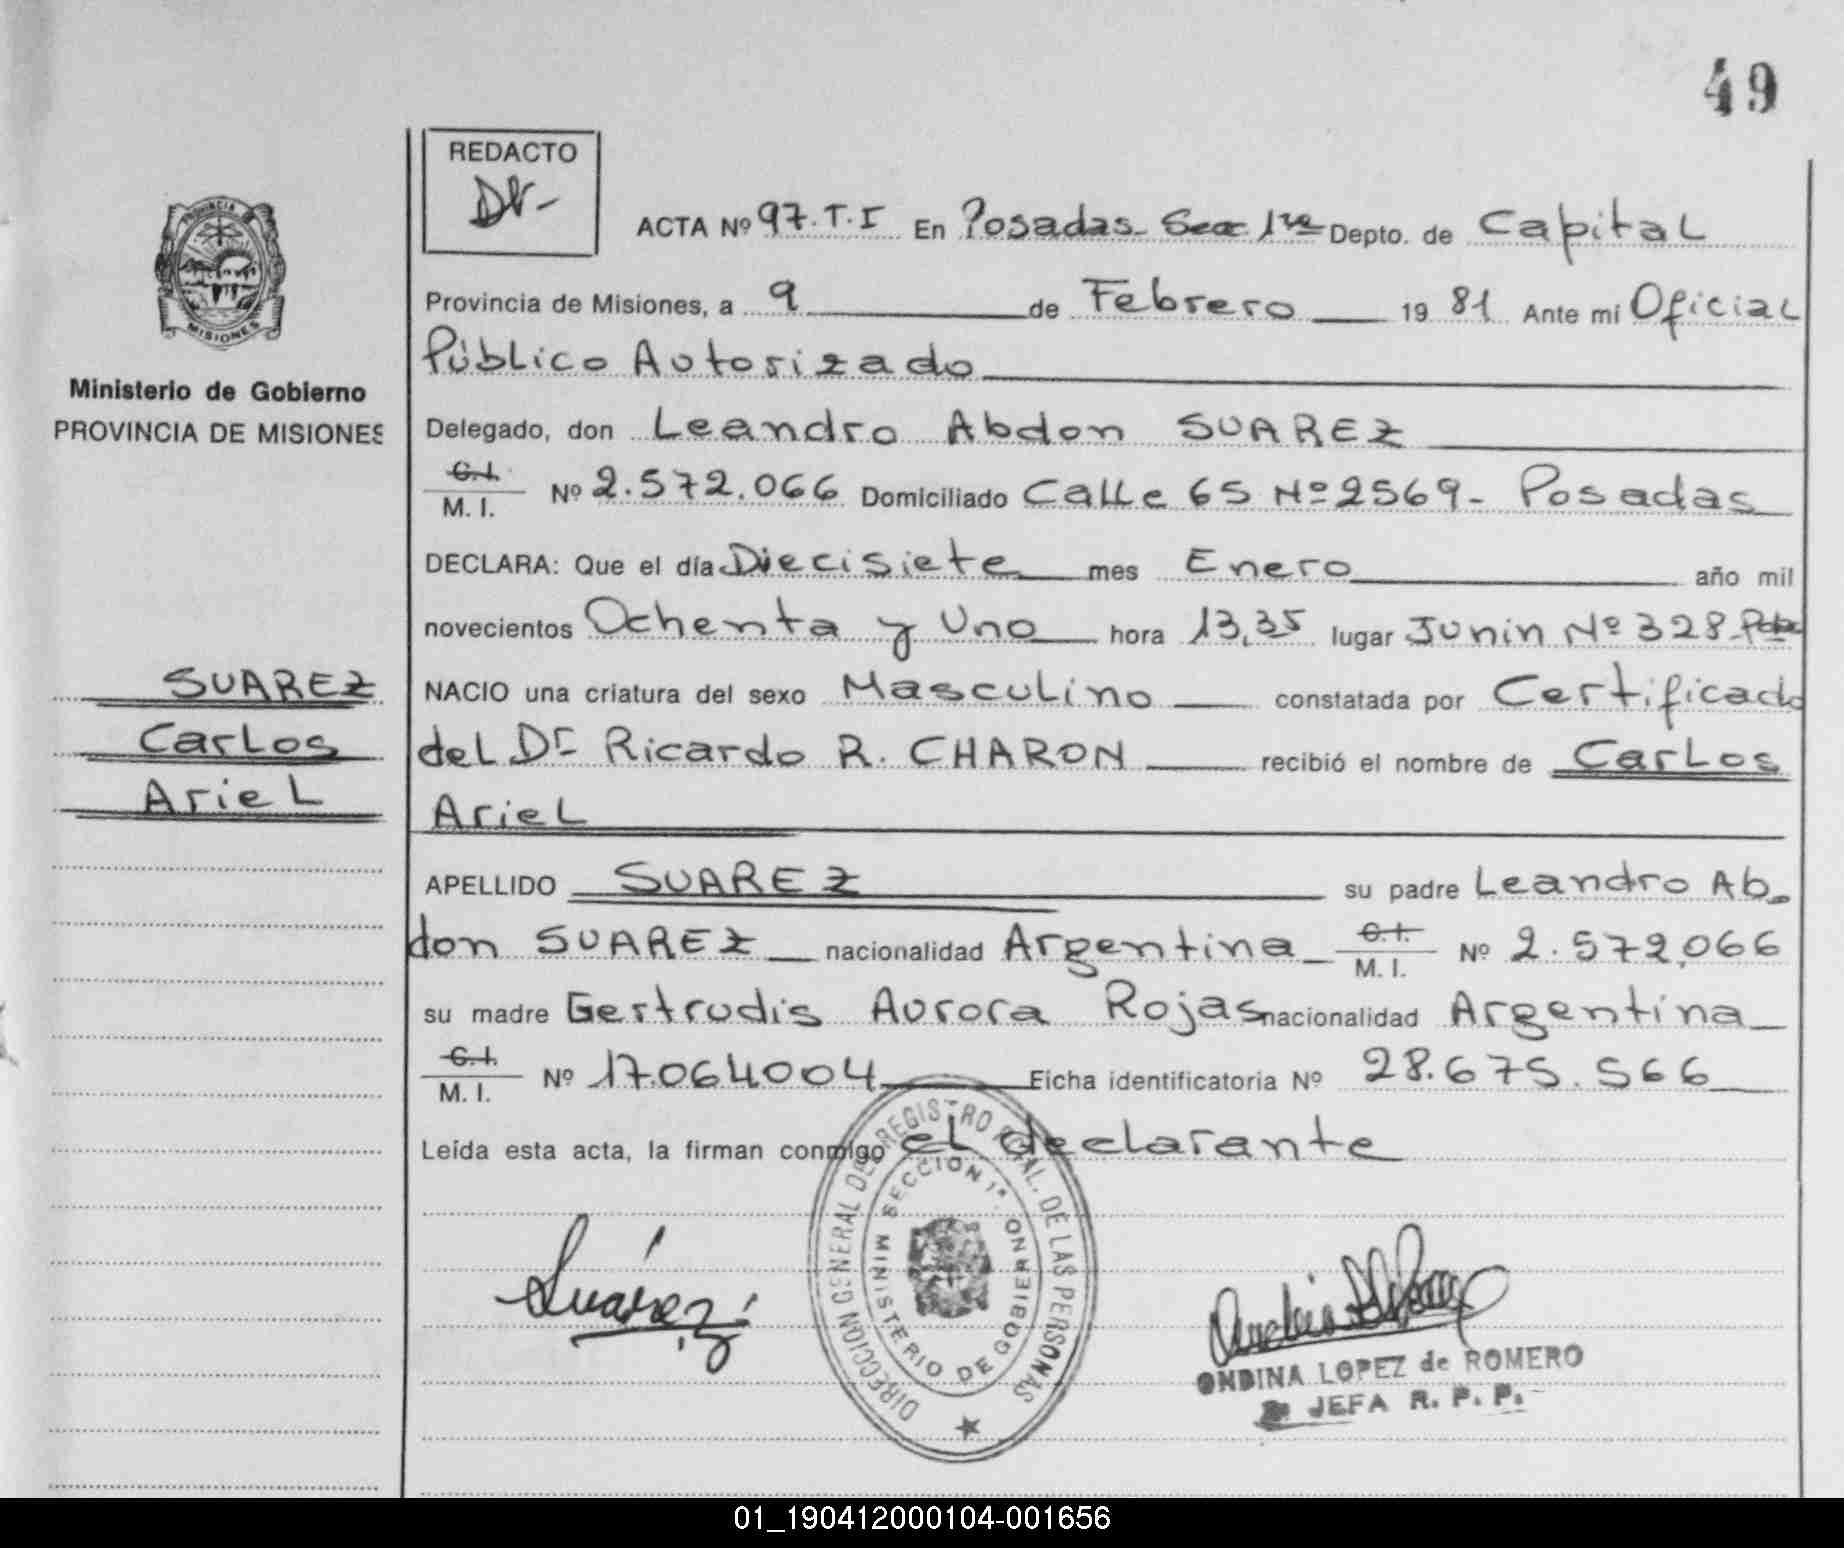 49
REDACTO
ACTA Nº 97.T.I En Posadas - Secc. 1ra Depto. de Capital
Provincia de Misiones, a 9 de Febrero 19 81 Ante mi Oficial
Público Autorizado
Delegado, don Leandro Abdon SUAREZ
C.I.
M. I. Nº 2.572.066 Domiciliado Calle 65 Nº 2569 - Posadas
DECLARA: Que el día Diecisiete mes Enero año mil
novecientos Ochenta y Uno hora 13,35 lugar Junin Nº 328 - Pdas
NACIO una criatura del sexo Masculino constatada por Certificado
del Dr Ricardo R. CHARON recibió el nombre de Carlos
Ariel
APELLIDO SUAREZ su padre Leandro Ab-
don SUAREZ nacionalidad Argentina C.I.
M. I. Nº 2.572.066
su madre Gertrudis Aurora Rojas nacionalidad Argentina
C.I.
M. I. Nº 17.064004 Ficha identificatoria Nº 28.675.566
Leída esta acta, la firman conmigo el declarante
PROVINCIA DE
MISIONES
Ministerio de Gobierno
PROVINCIA DE MISIONES
SUAREZ
Carlos
Ariel
Suárez
DIRECCION GENERAL DE REGISTRO PCIAL. DE LAS PERSONAS
SECCION 1ª
MINISTERIO DE GOBIERNO
ONDINA LOPEZ de ROMERO
JEFA R. P. P.
01_190412000104-001656